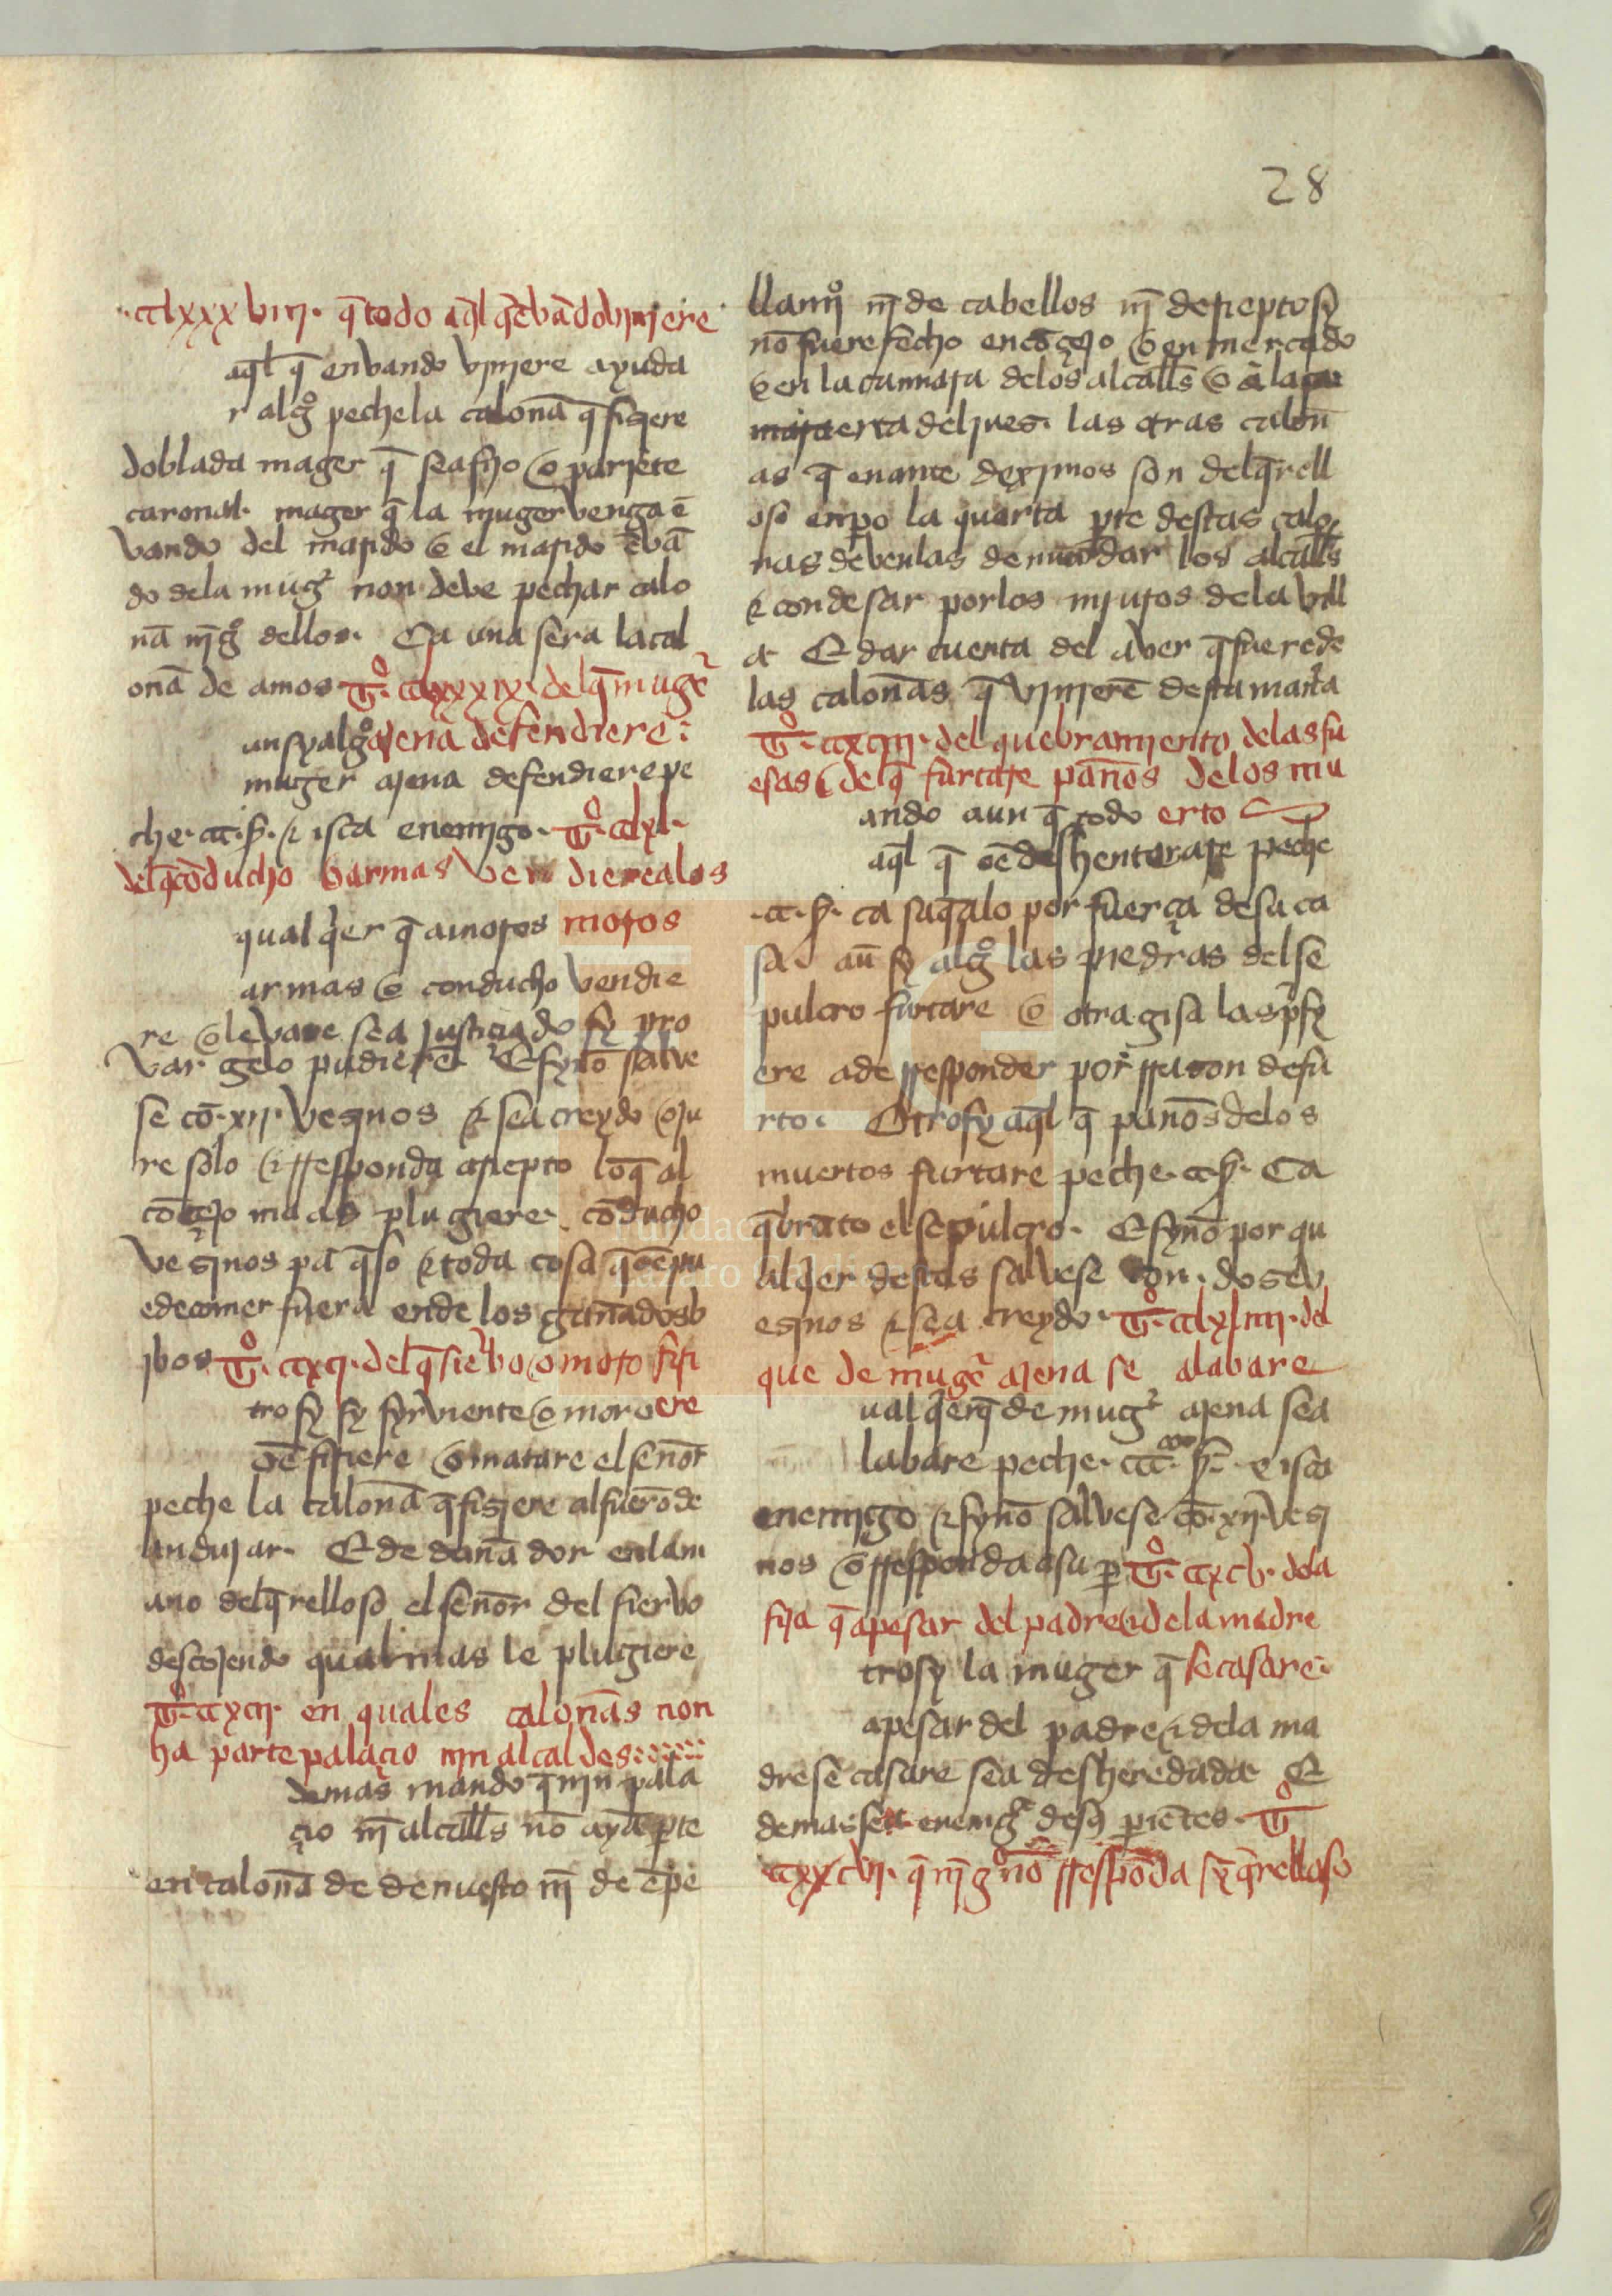 28
.cclxxxviij. q̄ todo aq̄l q̄ ēvādo vinjere
aq̄l q̄ en vando vinjere ayuda
r algº peche la calonā q̄ fisiere
doblada mager q̄ sea fijo o pariēte
caronal. mager q̄ la muger venga ē
vando del marido o el marido ēvā
do de la mugʳ non deve pechar calo
nā nīgº dellos. Ca una sera la cal
onā de amos Tº. cclxxxix. del q̄ mugʳ
un sy algº ajena defendiere:
muger ajena defendiere pe
che. cc. ṃ. e isca enemigo. Tº. cclxl.
del q̄ cōducho o armas vendiere a los
qual q̄er q̄ a moros moros
armas o conducho vendie
re o levare sea justiciado sy pro
var gelo pudierē E sy nō salve
se cō. xij. vesjnos e sea creydo o ju
re solo e rresponda a riepto lo q̄ al
cōcejo maas plugiere. cōducho
vesjnos pā q̄so e toda cosa q̄ oē pu
ede comer fuera ende los ganados b
jbos Tº. ccxcj. del q̄ siervo o moro firi
tro sy sy syrviente o moro ere
oē firiere o matare el señor
peche la calonā q̄ fisjere al fuero de
andujar. E de danā dor en la m
ano del q̄relloso el señor del siervo
descojendo qual mas le plugiere
Tº. ccxcij. en quales calonās non
ha parte palaçio njn alcaldes
demas mando q̄ njn pala
çio nī alcalls nō ayā pte
en calonā de denuesto nī de ēpe
llamjº nī de cabellos nī de riepto sy
nō fuere fecho en cōçejo o en mercado
o en la camara de los alcalls o a la
erta del jues. las otras calon
as q̄ enante deximos son del q̄rell
oso enpo la quarta pte destas calo
nas deven las demandar los alcalls
e condesar por los muros de la vill
a E dar cuenta del aver q̄ fuere de
las calonās q̄ vinjerē desta manʳa
Tº. ccxciij. del quebramjento de las fu
esas e del q̄ furtare panōs de los mu
ando aun q̄ todo erto
aq̄l q̄ oē deshenterare peche
.cc. ṃ. ca saq̄alo por fuerça de su ca
sa. aū sy algº las piedras del se
pulcro furtare o otra gisa las prisy
ere a de rresponder por rrason de fu
rto. Otrosy aq̄l q̄ panōs de los
muertos furtare peche. cc. ṃ. Ca
q̄branto el sepulcro. E sy nō por qu
alq̄er destas salvese con. dose v
esjnos e sea creydo. Tº. cclxliiij. del
que de mugʳ ajena se alabare
ual q̄er q̄ de mugʳ ajena sea
labare peche. ccc. ṃ. e isca
enemjgo e sy nō salvese cō. xij. vesj
nos o rresponda a su p Tº. ccxcv. de la
fija q̄ a pesar del padre e de la madre
trosy la muger q̄ se casare.
a pesar del padre e de la ma
dre se casare sea desheredada E
demas sea enemigª de sꝯ pariētes. Tº
ccxxcvj. q̄ nīgº nō rrespōda sȳ q̄relloso